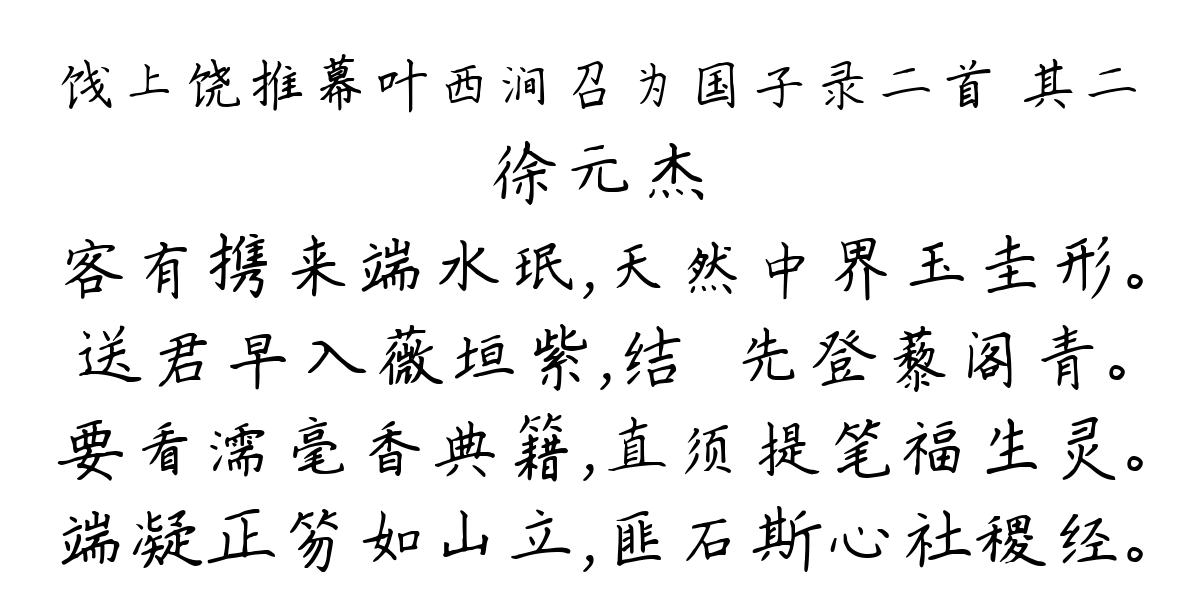 饯上饶推幕叶西涧召为国子录二首 其二
徐元杰
客有携来端水珉,天然中界玉圭形。
送君早入薇垣紫,结 先登藜阁青。
要看濡毫香典籍,直须提笔福生灵。
端凝正笏如山立,匪石斯心社稷经。